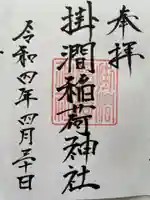 奉拝
掛澗稲荷神社
令和四年四月三十日